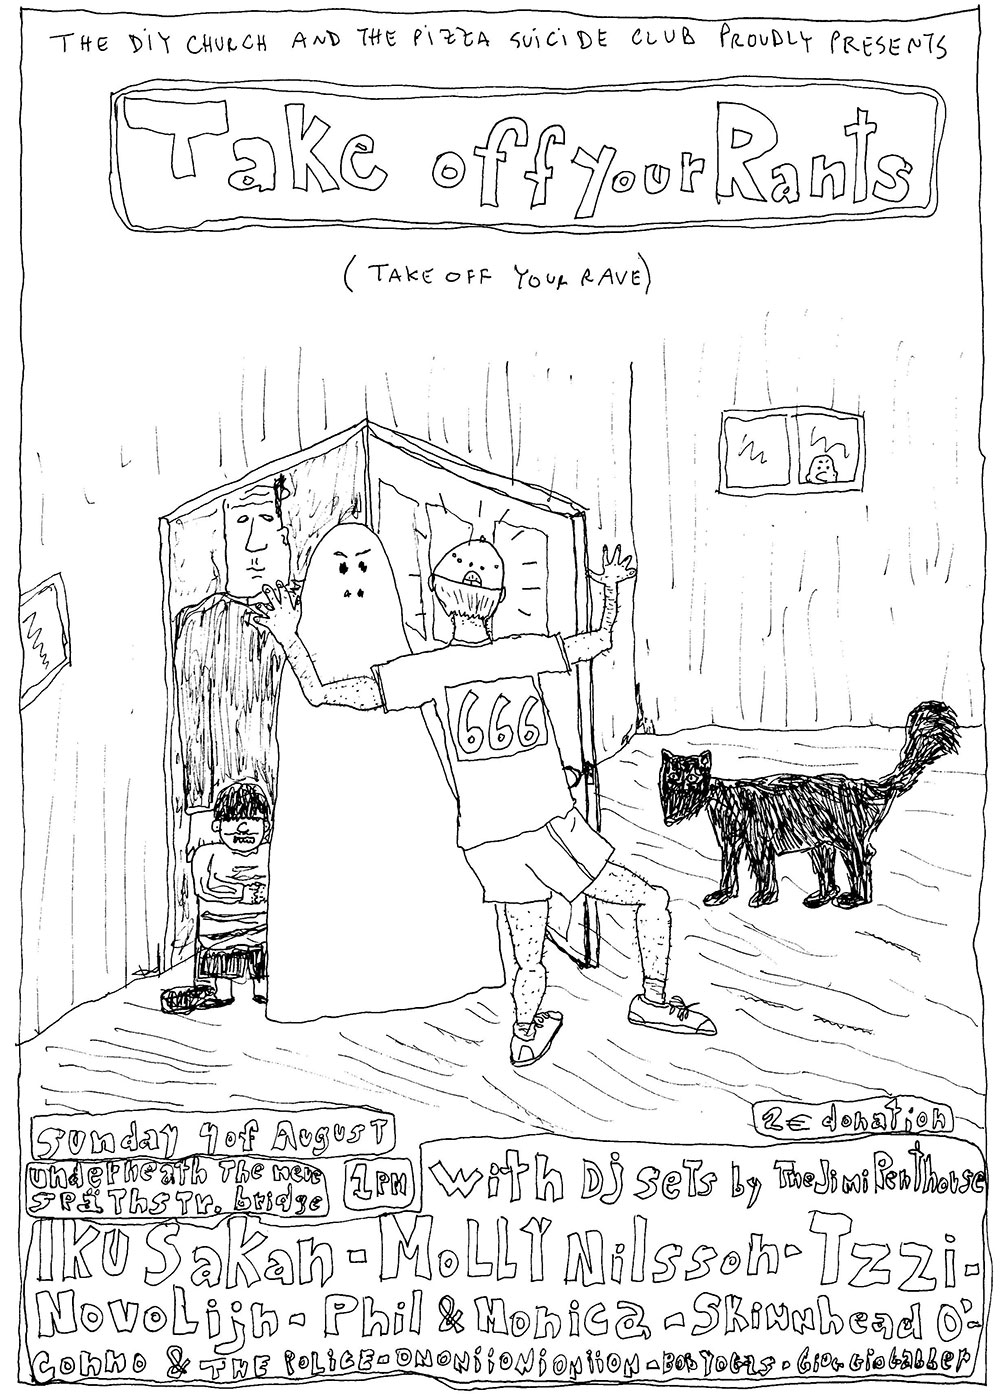 THE DIY CHURCH AND THE PIZZA SUICIDE CLUB PROUDLY PRESENTS
Take off your Rants
(TAKE OFF YOUR RAVE)
666
Sunday 4 of August
2€ donation
underneath The new
1PM
with Dj sets by The Jimi Penthouse
Iku Sakan - Molly Nilsson - Tzzi -
Novo Lijn - Phil & Monica - Skinnhead O'-
Conno & THE POLICE -